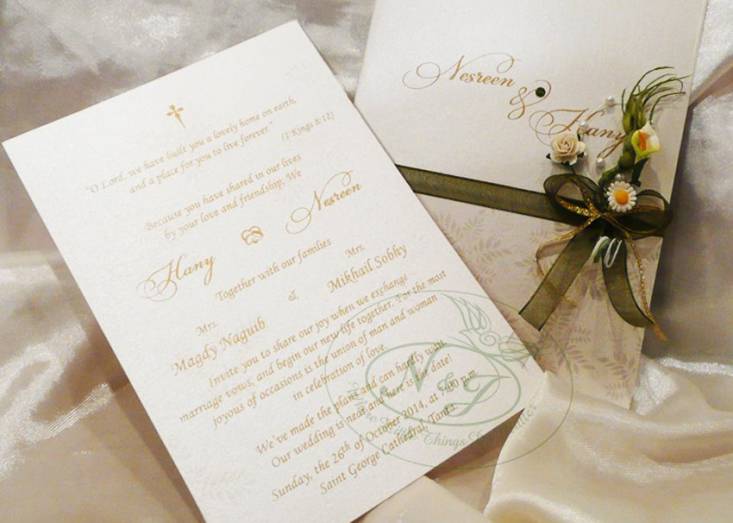 "O Lord, we have built you a lovely home on earth,
and a place for you to live forever."
(I Kings 8:12)
Because you have shared in our lives
by your love and friendship, We
Hany
Nesreen
Together with our families
Mrs.
Magdy Naguib
&
Mrs.
Mikhail Sobhy
Invite you to share our joy when we exchange
marriage vows, and begin our new life together. For the most
joyous of occasions is the union of man and woman
in celebration of love.
We've made the plans and can hardly wait
Our wedding is near and here is the date!
Sunday, the 26th of October 2014, at 7:00 p.m.
Saint George Cathedral, Tanta.
Nesreen
&
Hany
Things